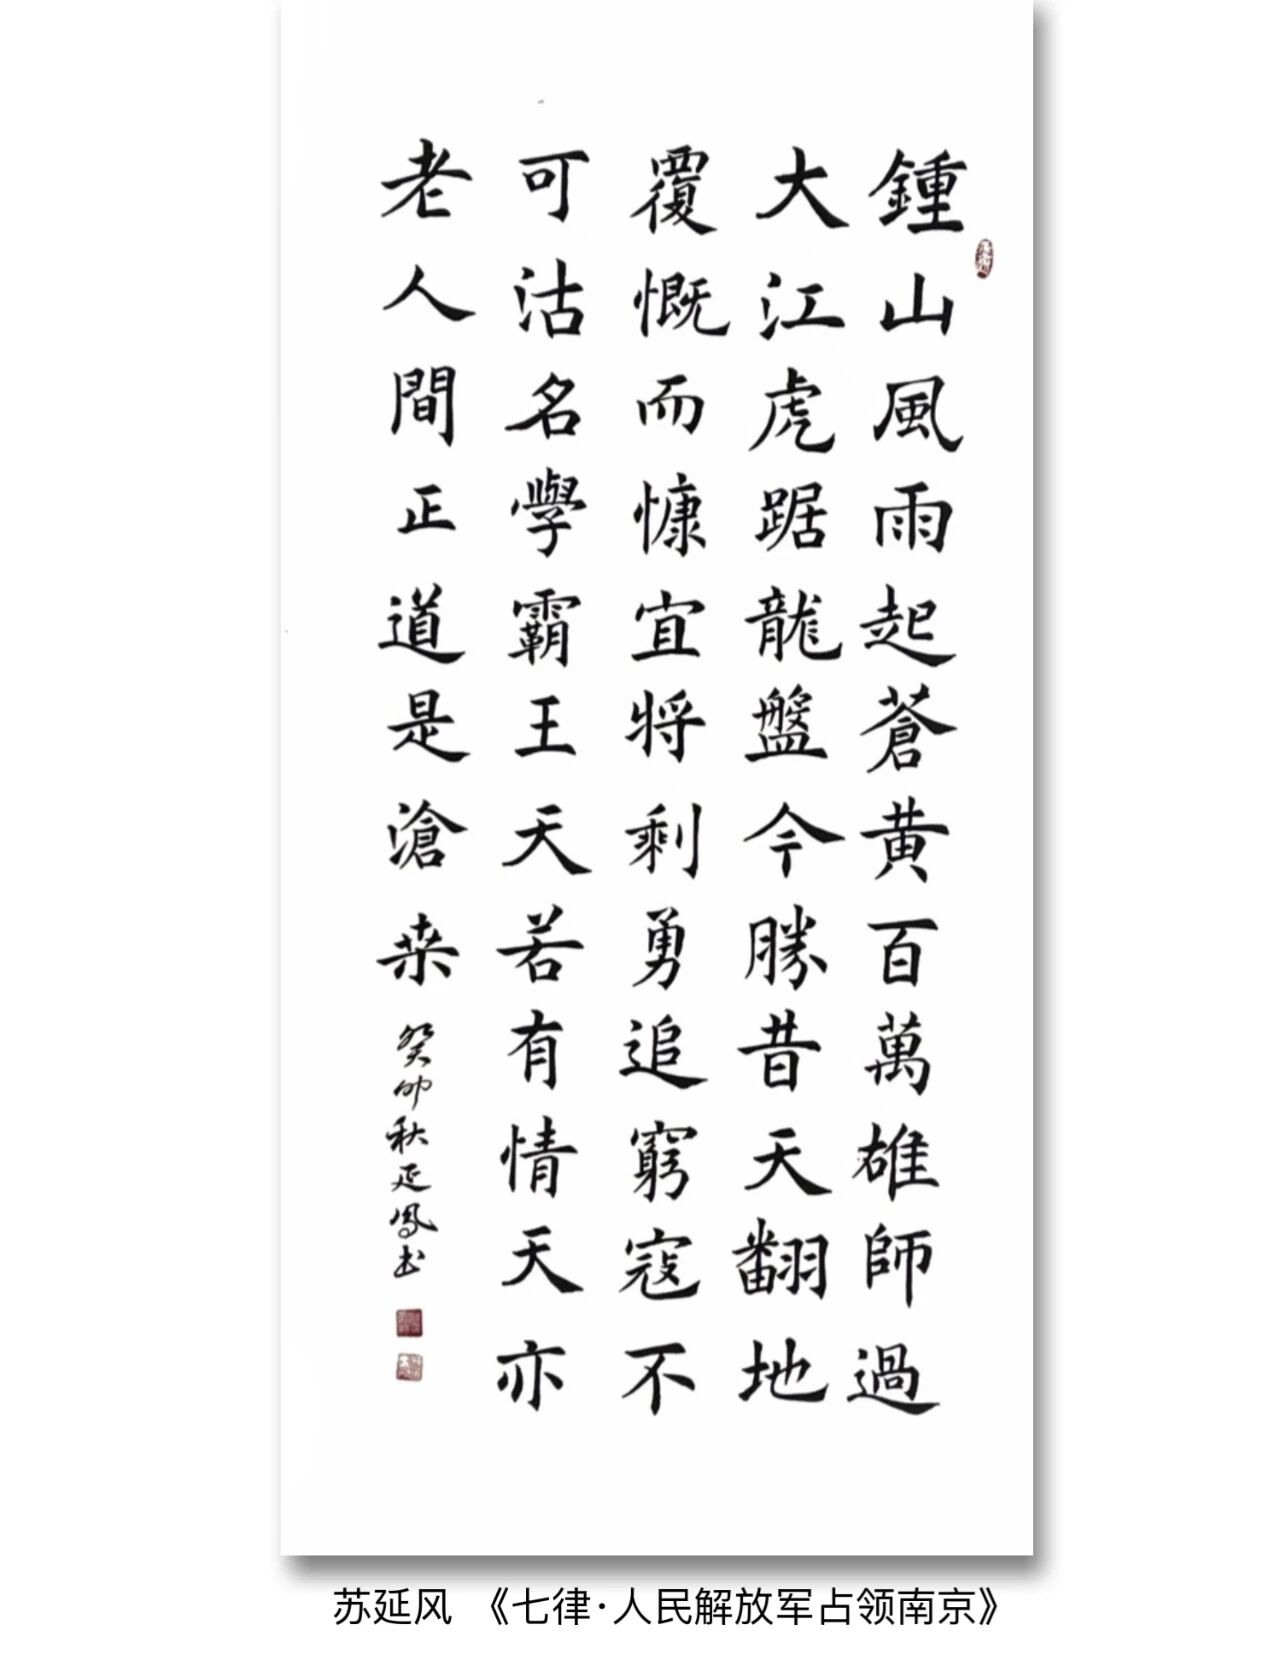 鍾山風雨起蒼黄百萬雄師過
大江虎踞龍盤今勝昔天翻地
覆慨而慷宜将剩勇追窮寇不
可沽名學霸王天若有情天亦
老人間正道是滄桒
癸卯秋延鳳书
苏延风 《七律·人民解放军占领南京》